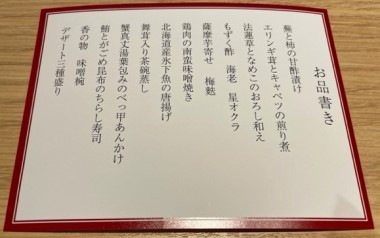 お品書き
蕪と柿の甘酢漬け
エリンギ茸とキャベツの煎り煮
法蓮草となめこのおろし和え
もずく酢 海老 星オクラ
薩摩芋寄せ 梅麩
鶏肉の南蛮味噌焼き
北海道産氷下魚の唐揚げ
舞茸入り茶碗蒸し
蟹真丈湯葉包みのべっ甲あんかけ
鮪とがごめ昆布のちらし寿司
香の物 味噌椀
デザート三種盛り